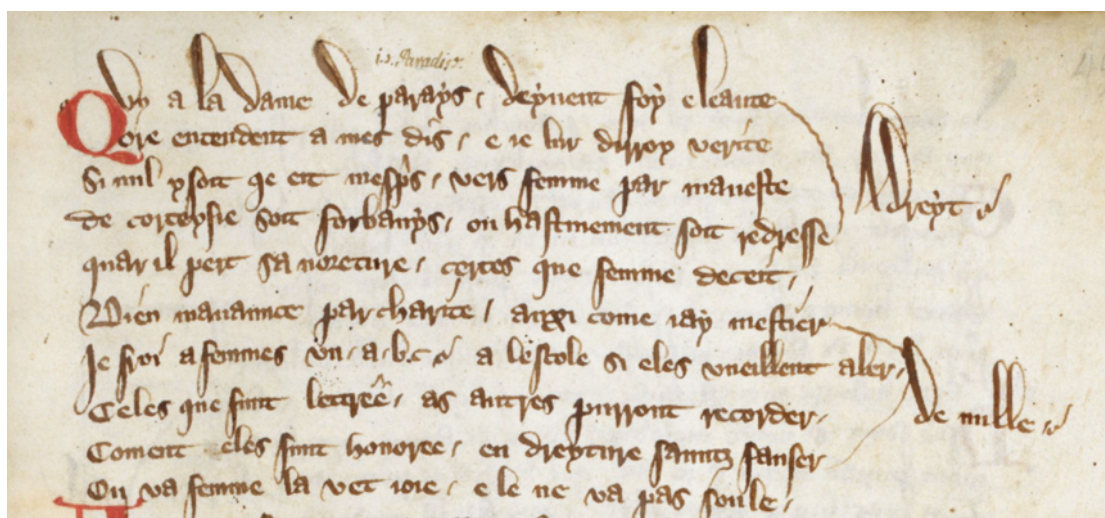 i.e. Paradise.
Quy a la Dame de parays . deyuent foy e leaute
Qore entendent a mes dis . e ie lur dirroy verite
Si nul y soit qe eit mesprs . vers femme par maueste
de corteysie soit forbanys . ou hastiuement soit redresse
A dreyt .
quar il pert sa noreture . certes que femme deceit .
Dieu mauaunce par charite . auxi come iay mestier
Je froi a femmes vn . a . b . c . a lescole si eles vueillent aler .
Celes que sunt lettree . as autres purront recorder .
De nulle .
Coment eles sunt honoree . en dreyture sauntz fauser
Ou va femme la vet ioie . e le ne va pas soule .